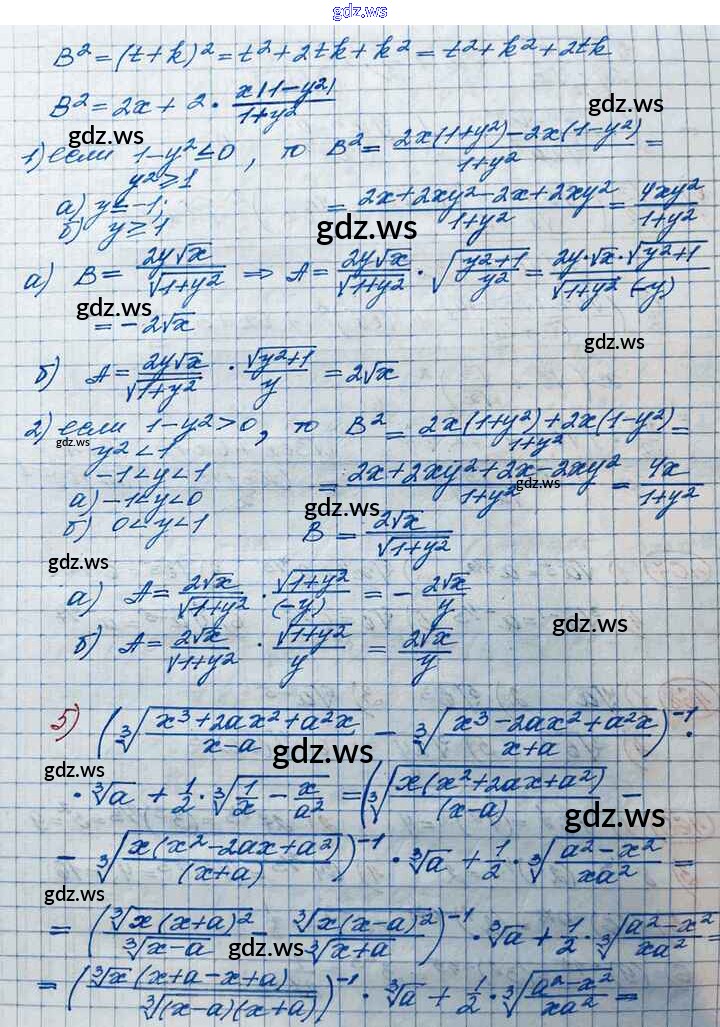 gdz.ws
B² = (t+k)² = t² + 2tk + k² = t² + k² + 2tk
B² = 2x + 2 · x|1-y²|/1+y²
gdz.ws gdz.ws
1) если 1-y² ≤ 0, то B² = 2x(1+y²)-2x(1-y²)/1+y² =
y² ≥ 1
а) y ≤ -1; = 2x+2xy²-2x+2xy²/1+y² = 4xy²/1+y²
б) y ≥ 1
gdz.ws
а) B = 2y√x/√1+y² ⇒ A = 2y√x/√1+y² · √y²+1/y² = 2y·√x·√y²+1/√1+y² (-y)
gdz.ws
= -2√x
б) A = 2y√x/√1+y² · √y²+1/y = 2√x
2) если 1-y² > 0, то B² = 2x(1+y²)+2x(1-y²)/1+y² =
gdz.ws
y² < 1
-1 < y < 1 = 2x+2xy²+2x-2xy²/1+y² = 4x/1+y²
gdz.ws
а) -1 < y < 0
gdz.ws
б) 0 < y < 1 B = 2√x/√1+y²
gdz.ws
а) A = 2√x/√1+y² · √1+y²/(-y) = - 2√x/y
gdz.ws
б) A = 2√x/√1+y² · √1+y²/y = 2√x/y
5) (∛x³+2ax²+a²x/x-a - ∛x³-2ax²+a²x/x+a)⁻¹ ·
gdz.ws gdz.ws
· ∛a + 1/2 · ∛1/x - x/a² = (∛x(x²+2ax+a²)/(x-a) -
gdz.ws
- ∛x(x²-2ax+a²)/(x+a))⁻¹ · ∛a + 1/2 · ∛a²-x²/xa² =
gdz.ws
= (∛x(x+a)²/∛x-a - ∛x(x-a)²/∛x+a)⁻¹ · ∛a + 1/2 · ∛a²-x²/xa² =
gdz.ws gdz.ws
= (∛x(x+a-x+a)/∛(x-a)(x+a))⁻¹ · ∛a + 1/2 · ∛a²-x²/xa² =